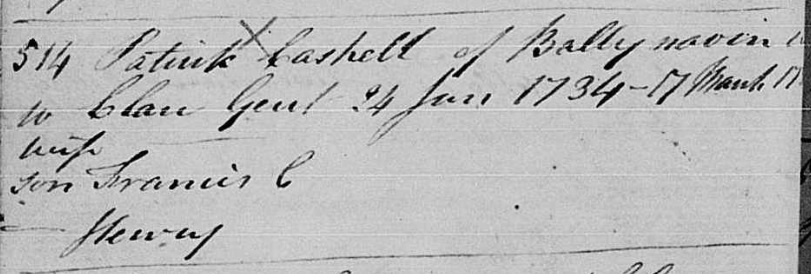 514 Patrick Cashell of Ballynavin
Co Clare Gent 24 Jan 1734 - 17 March 17
wife
son Francis C
— Henry